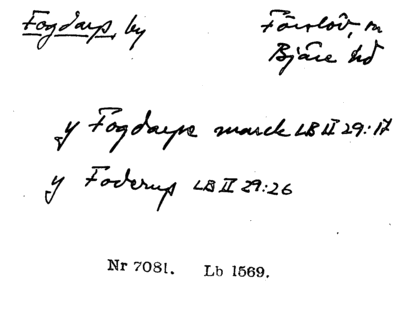 Fogdarp, by Förslöv, sn
Bjäre hd
y Fogdarpe marck LB II 29:17
y Foderup LB II 29:26
Nr 7081. Lb 1569.